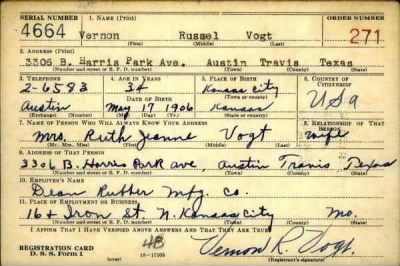 SERIAL NUMBER 1. NAME (Print) ORDER NUMBER
4664 Vernon Russel Vogt 271
(First) (Middle) (Last)
2. ADDRESS (Print)
3306 B. Harris Park Ave. Austin Travis Texas
(Number and street or R. F. D. number) (Town) (County) (State)
3. TELEPHONE 4. AGE IN YEARS 5. PLACE OF BIRTH 6. COUNTRY OF CITIZENSHIP
2-6583 34 Kansas City
DATE OF BIRTH (Town or county) USA
Austin May 17 1906 Kansas
(Exchange) (Number) (Mo.) (Day) (Yr.) (State or country)
7. NAME OF PERSON WHO WILL ALWAYS KNOW YOUR ADDRESS 8. RELATIONSHIP OF THAT PERSON
Mrs. Ruth Jeanne Vogt wife
(Mr., Mrs., Miss) (First) (Middle) (Last)
9. ADDRESS OF THAT PERSON
3306 B. Harris Park Ave, Austin Travis Texas
(Number and street or R. F. D. number) (Town) (County) (State)
10. EMPLOYER'S NAME
Dean Rubber Mfg. Co.
11. PLACE OF EMPLOYMENT OR BUSINESS
16 & Iron St N. Kansas City Mo.
(Number and street or R. F. D. number) (Town) (County) (State)
I AFFIRM THAT I HAVE VERIFIED ABOVE ANSWERS AND THAT THEY ARE TRUE.
REGISTRATION CARD 4B Vernon R. Vogt
D. S. S. Form 1 16—17105 (Registrant's signature)